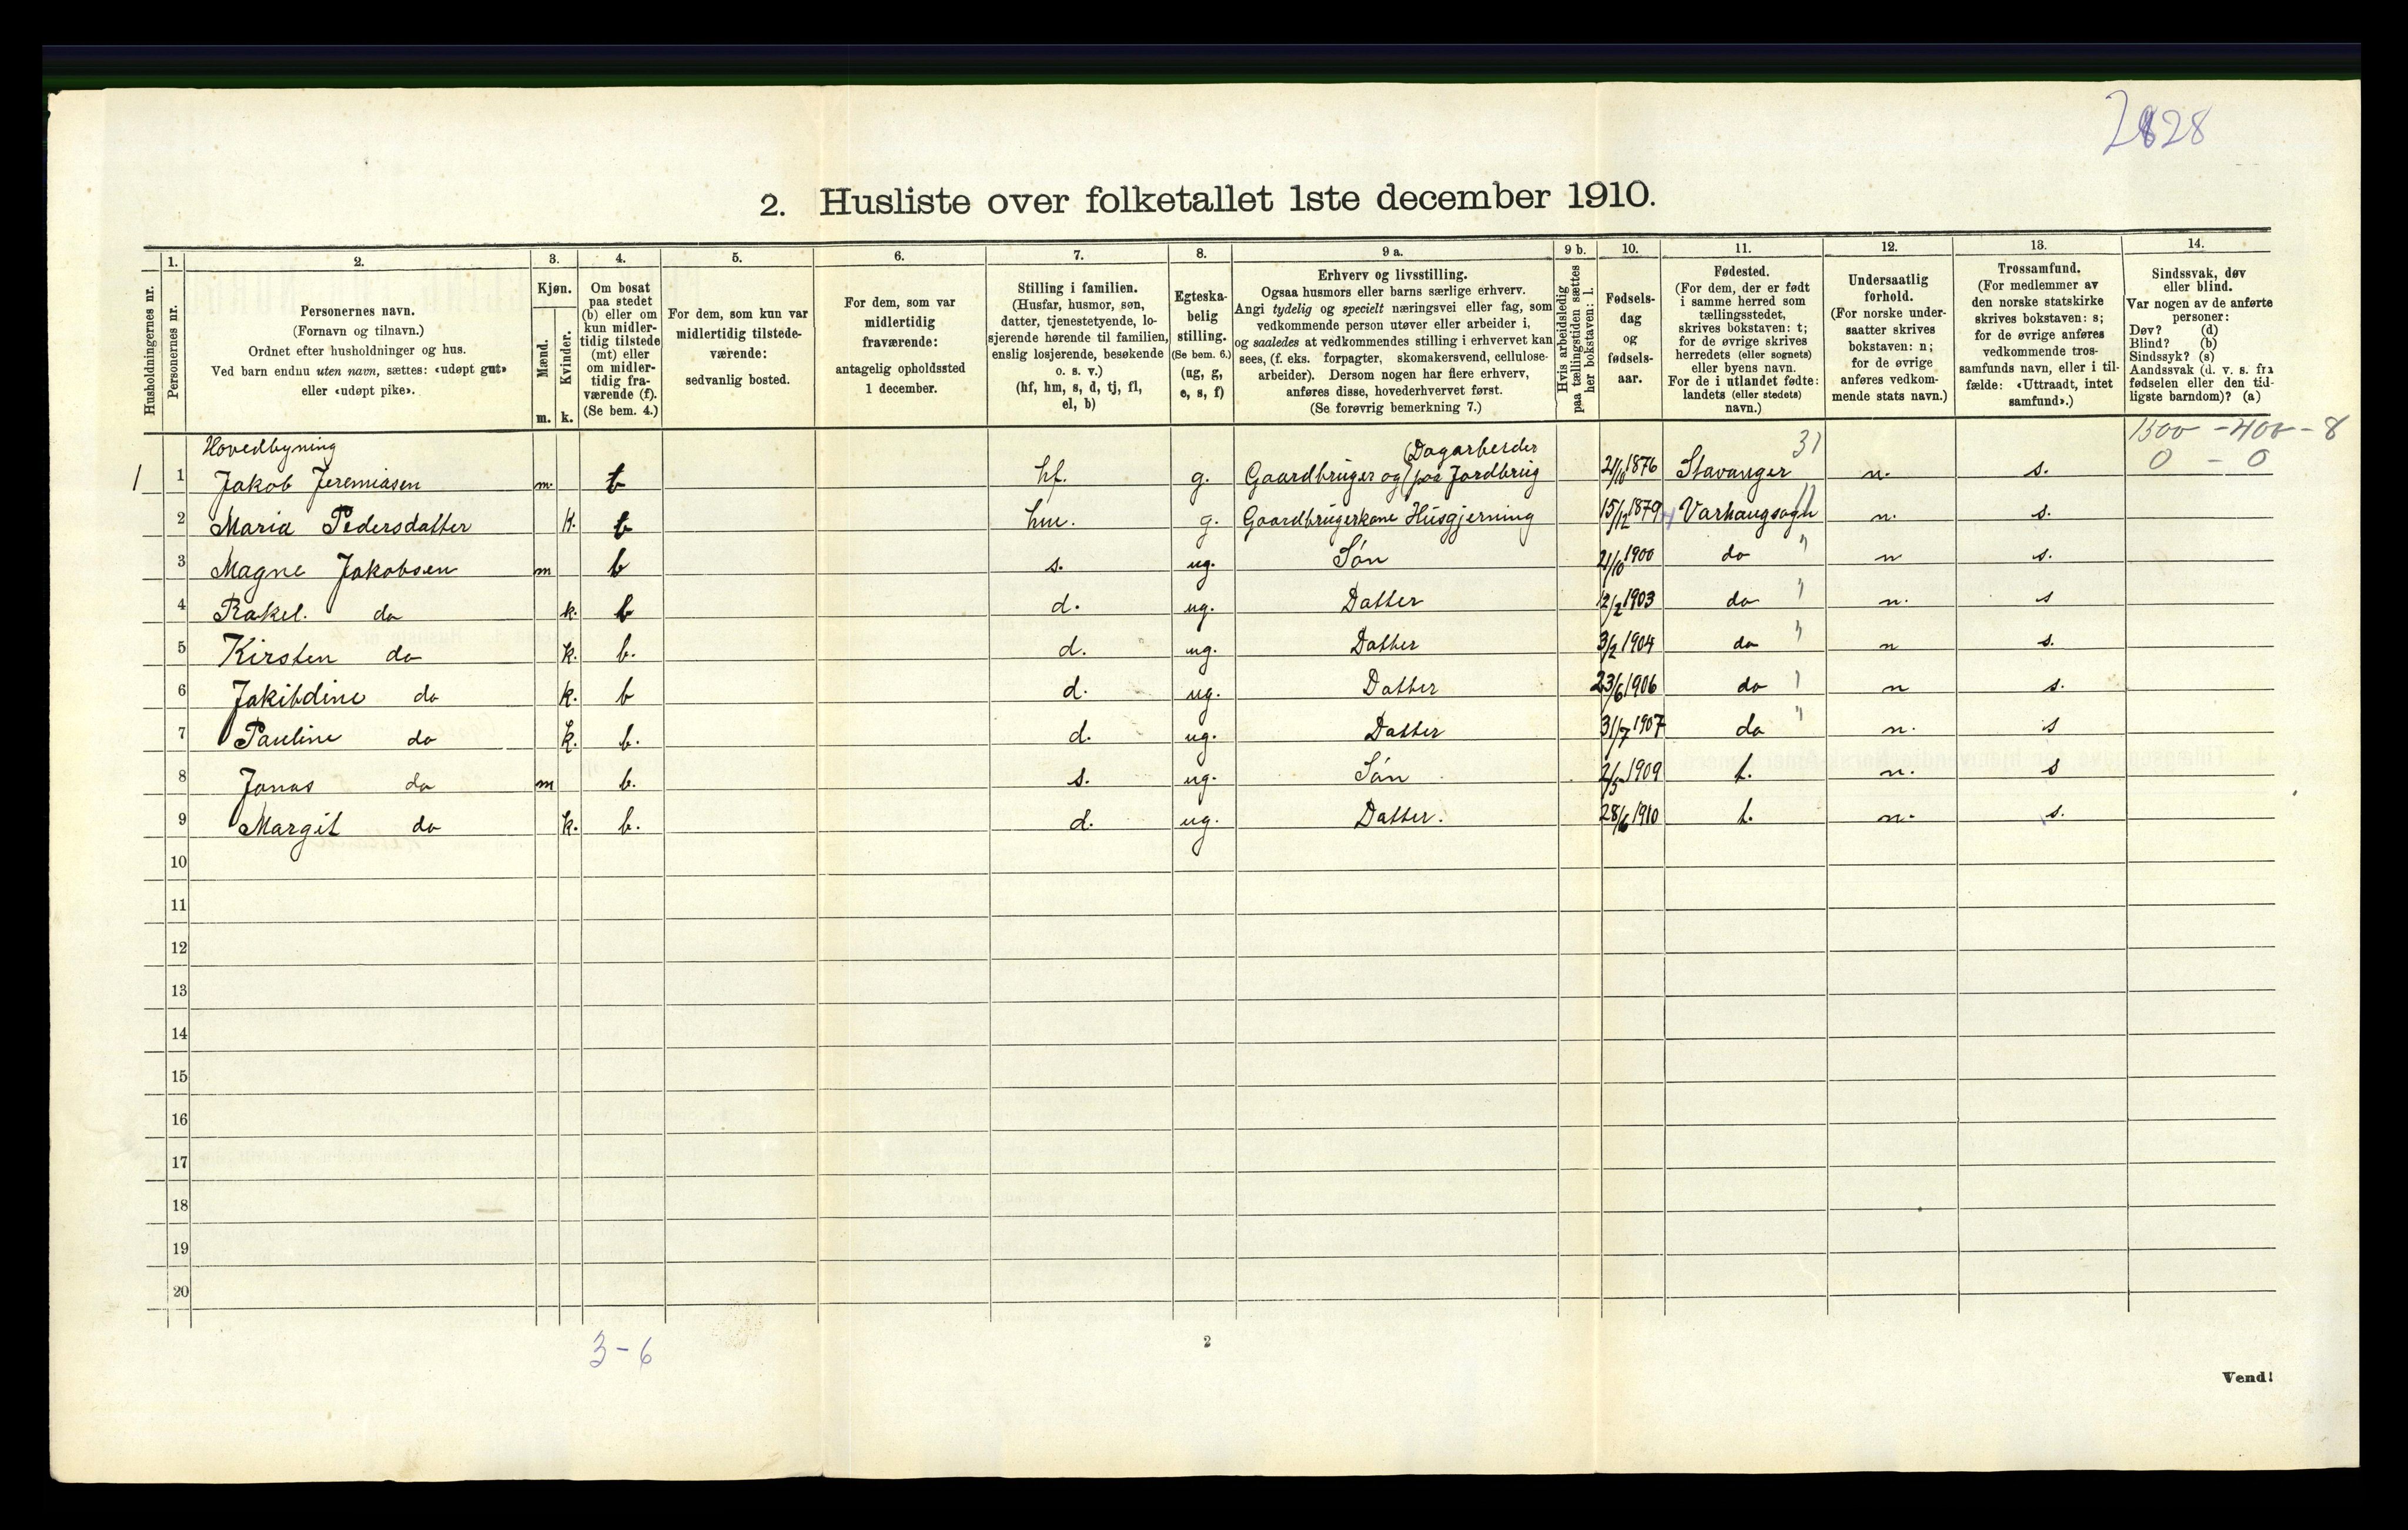 2828
2. Husliste over folketallet 1ste december 1910.
Husholdningernes nr.
1.
Personernes nr.
2.
Personernes navn.
(Fornavn og tilnavn.)
Ordnet efter husholdninger og hus.
Ved barn endnu uten navn, sættes: «udøpt gut»
eller «udøpt pike».
3.
Kjøn.
Mænd.
m.
Kvinder.
k.
4.
Om bosat
paa stedet
(b) eller om
kun midler-
tidig tilstede
(mt) eller
om midler-
tidig fra-
værende (f).
(Se bem. 4.)
5.
For dem, som kun var
midlertidig tilstede-
værende:
sedvanlig bosted.
6.
For dem, som var
midlertidig
fraværende:
antagelig opholdssted
1 december.
7.
Stilling i familien.
(Husfar, husmor, søn,
datter, tjenestetyende, lo-
sjerende hørende til familien,
enslig losjerende, besøkende
o. s. v.)
(hf, hm, s, d, tj, fl,
el, b)
8.
Egteska-
belig
stilling.
(Se bem. 6.)
(ug, g,
e, s, f)
9 a.
Erhverv og livsstilling.
Ogsaa husmors eller barns særlige erhverv.
Angi tydelig og specielt næringsvei eller fag, som
vedkommende person utøver eller arbeider i,
og saaledes at vedkommendes stilling i erhvervet kan
sees, (f. eks. forpagter, skomakersvend, cellulose-
arbeider). Dersom nogen har flere erhverv,
anføres disse, hovederhvervet først.
(Se forøvrig bemerkning 7.)
9 b.
Hvis arbeidsledig
paa tællingstiden sættes
her bokstaven: l.
10.
Fødsels-
dag
og
fødsels-
aar.
11.
Fødested.
(For dem, der er født
i samme herred som
tællingsstedet,
skrives bokstaven: t;
for de øvrige skrives
herredets (eller sognets)
eller byens navn.
For de i utlandet fødte:
landets (eller stedets)
navn.)
12.
Undersaatlig
forhold.
(For norske under-
saatter skrives
bokstaven: n;
for de øvrige
anføres vedkom-
mende stats navn.)
13.
Trossamfund.
(For medlemmer av
den norske statskirke
skrives bokstaven: s;
for de øvrige anføres
vedkommende tros-
samfunds navn, eller i til-
fælde: «Uttraadt, intet
samfund».)
14.
Sindssvak, døv
eller blind.
Var nogen av de anførte
personer:
Døv? (d)
Blind? (b)
Sindssyk? (s)
Aandssvak (d. v. s. fra
fødselen eller den tid-
ligste barndom)? (a)
Hovedbyning (Dagarbeider 31 1500 - 400 - 8
1 1 Jakob Jeremiasen m. b hf. g. Gaardbruger og (paa Jordbrug 21/10 1876 Stavanger n. s. 0 - 0
2 Maria Pedersdatter K. b hm. g. Gaardbrugerkone Husgjerning 15/12 1879 Varhaugsogn n. s.
3 Magne Jakobsen m b s. ug. Søn 21/10 1900 do " n s.
4 Rakel. do k. b d. ug. Datter 12/2 1903 do " n. s
5 Kirsten do k. b. d. ug. Datter 3/2 1904 do " n s.
6 Jakibdine do k. b d. ug. Datter 23/6 1906 do " n s.
7 Pauline do k. b. d. ug. Datter 31/7 1907 do " n. s
8 Jonas do m b. s. ug. Søn 2/5 1909 t. n. s
9 Margit do k. b. d. ug. Datter. 28/6 1910 t. n. s.
10
11
12
13
14
15
16
17
18
19
20
3-6
2
Vend!